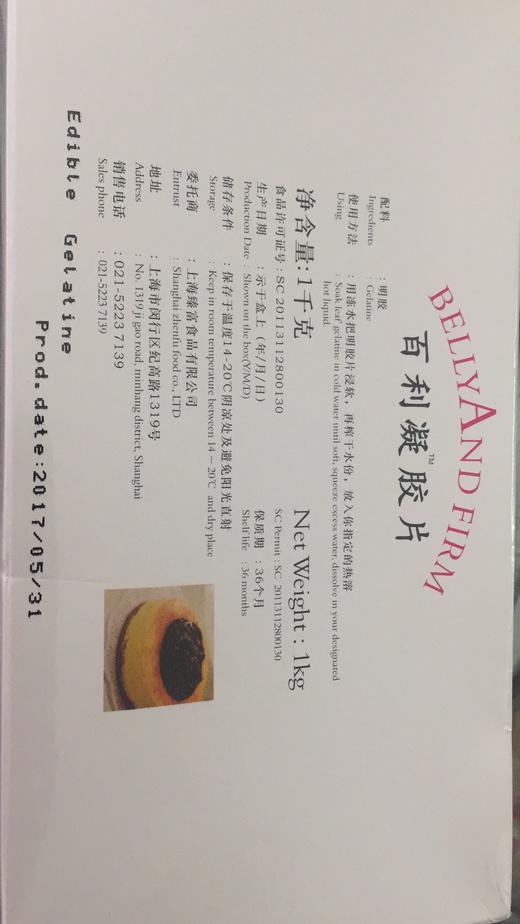 BELLY AND FIRM
百利凝胶片™
配料 : 明胶
Ingredients : Gelatine
使用方法 : 用冻水把明胶片浸软，再榨干水份，放入你指定的热溶
Using : Soak leaf gelatine in cold water until soft, squeeze excess water, dissolve in your designated
hot liquid.
净含量: 1千克 Net Weight : 1kg
食品许可证号 : SC 20113112800130 SC Permit : SC 20113112800130
生产日期 : 示于盒上（年/月/日） 保质期 : 36个月
Production Date : Shown on the box(Y/M/D) Shelf life : 36 months
储存条件 : 保存于温度14-20℃阴凉处及避免阳光直射
Storage : Keep in room temperature between 14 - 20℃ and dry place
委托商 : 上海臻富食品有限公司
Entrust : Shanghai zhenfu food co., LTD
地址 : 上海市闵行区纪高路1319号
Address : No. 1319 ji gao road, minhang district, Shanghai
销售电话 : 021-5223 7139
Sales phone : 021-5223 7139
Edible Gelatine
Prod.date:2017/05/31